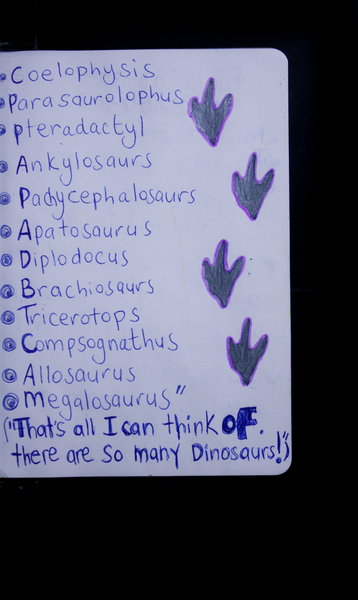 Coelophysis
Parasaurolophus
Pteradactyl
Ankylosaurs
Padycephalosaurs
Apatosaurus
Diplodocus
Brachiosaurs
Tricerotops
Compsognathus
Allosaurus
Megalosaurus"
("That's all I can think OF.
there are so many Dinosaurs!")